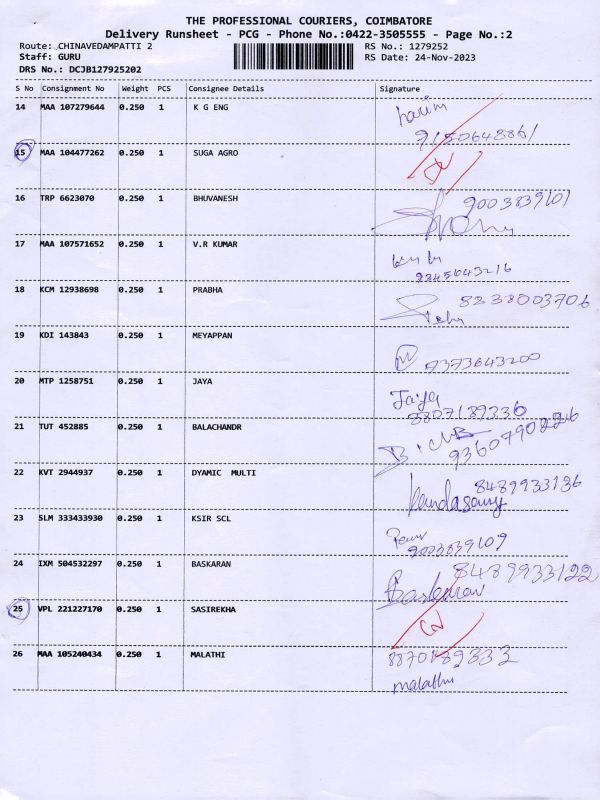 THE PROFESSIONAL COURIERS, COIMBATORE
Delivery Runsheet - PCG - Phone No.:0422-3505555 - Page No.:2
Route: CHINAVEDAMPATTI 2 RS No.: 1279252
Staff: GURU RS Date: 24-Nov-2023
DRS No.: DCJB127925202
S No Consignment No Weight PCS Consignee Details Signature
14 MAA 107279644 0.250 1 K G ENG
9150648861
15 MAA 104477262 0.250 1 SUGA AGRO
16 TRP 6623070 0.250 1 BHUVANESH 9003839101
17 MAA 107571652 0.250 1 V.R KUMAR
9345643216
18 KCM 12938698 0.250 1 PRABHA 8338003706
19 KDI 143843 0.250 1 MEYAPPAN
9373643200
20 MTP 1258751 0.250 1 JAYA Jaya
8807189336
21 TUT 452885 0.250 1 BALACHANDR
22 KVT 2944937 0.250 1 DYAMIC MULTI 8489933136
Kandasamy
23 SLM 333433930 0.250 1 KSIR SCL
9003839109
24 IXM 504532297 0.250 1 BASKARAN 8489933122
Baskaran
25 VPL 221227170 0.250 1 SASIREKHA
26 MAA 105240434 0.250 1 MALATHI
malathi